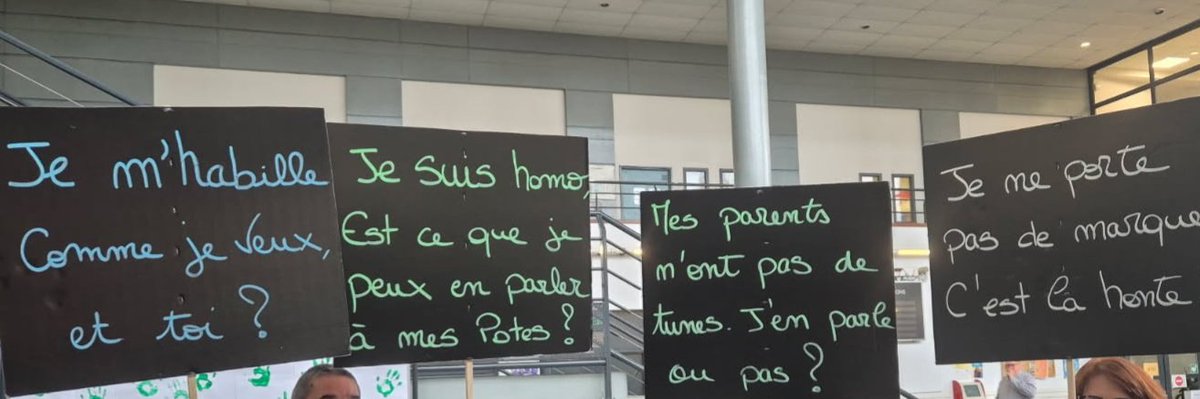 Je m'habille
Comme je veux,
et toi ?
Je suis homo,
Est ce que je
peux en parler
à mes Potes ?
Mes parents
m'ont pas de
tunes. J'en parle
ou pas ?
Je ne porte
pas de marque
C'est la honte